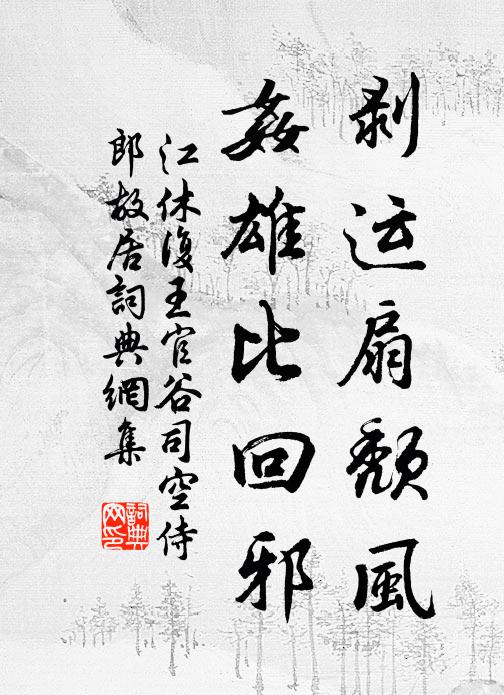 剥运扇颓風
姦雄比回邪
江休復王官谷司空侍
郎故居詞典網集
詞典网印